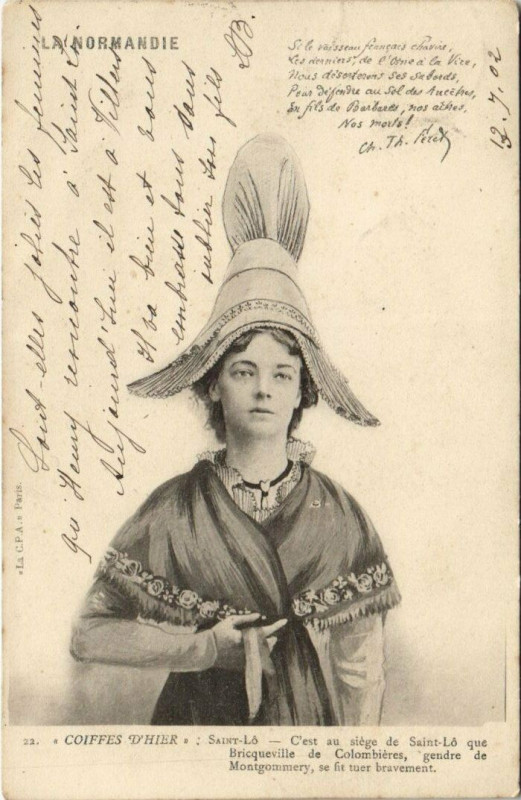 LA NORMANDIE
Si le vaisseau français chavire,
Les derniers, de l'Orne à la Vire,
Nous déserterons ses sabords,
Pour défendre au sol des Ancêtres,
En fils de Barbares, nos aîtres,
Nos morts!
Ch. Th. Féret
12.7.02
Sont-elles jolies les femmes
qu'Henry rencontre à Saint-Lô
Aujourd'hui il est à Villers
Il va bien et vous
embrasse tous sans
oublier son fils
B.
«La C.P.A.» Paris.
22. « COIFFES D'HIER » : SAINT-LÔ — C'est au siége de Saint-Lô que
Bricqueville de Colombières, gendre de
Montgommery, se fit tuer bravement.